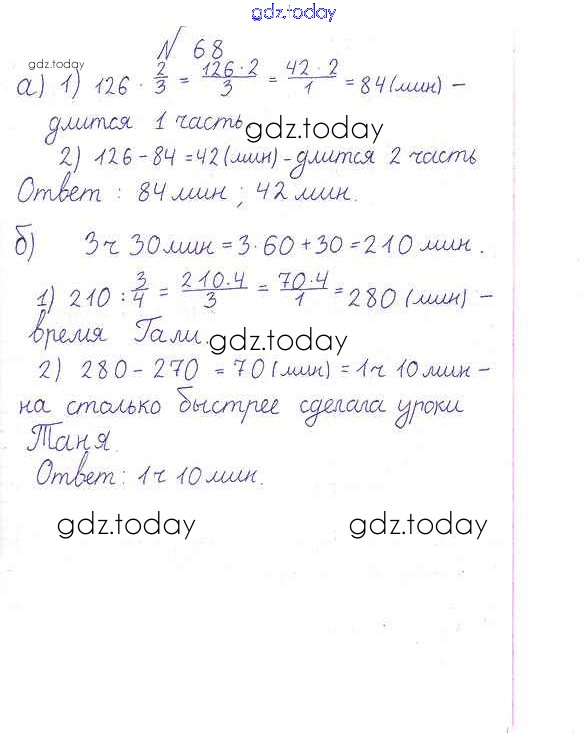 gdz.today
№ 68
gdz.today
а) 1) 126 · 2/3 = 126·2/3 = 42·2/1 = 84 (мин) –
длится 1 часть
gdz.today
2) 126 – 84 = 42 (мин) – длится 2 часть
Ответ : 84 мин ; 42 мин.
б) 3 ч 30 мин = 3·60 + 30 = 210 мин .
1) 210 : 3/4 = 210·4/3 = 70·4/1 = 280 (мин) –
время Гали.
gdz.today
2) 280 – 270 = 70 (мин) = 1 ч 10 мин –
на столько быстрее сделала уроки
Таня.
Ответ : 1 ч 10 мин.
gdz.today gdz.today